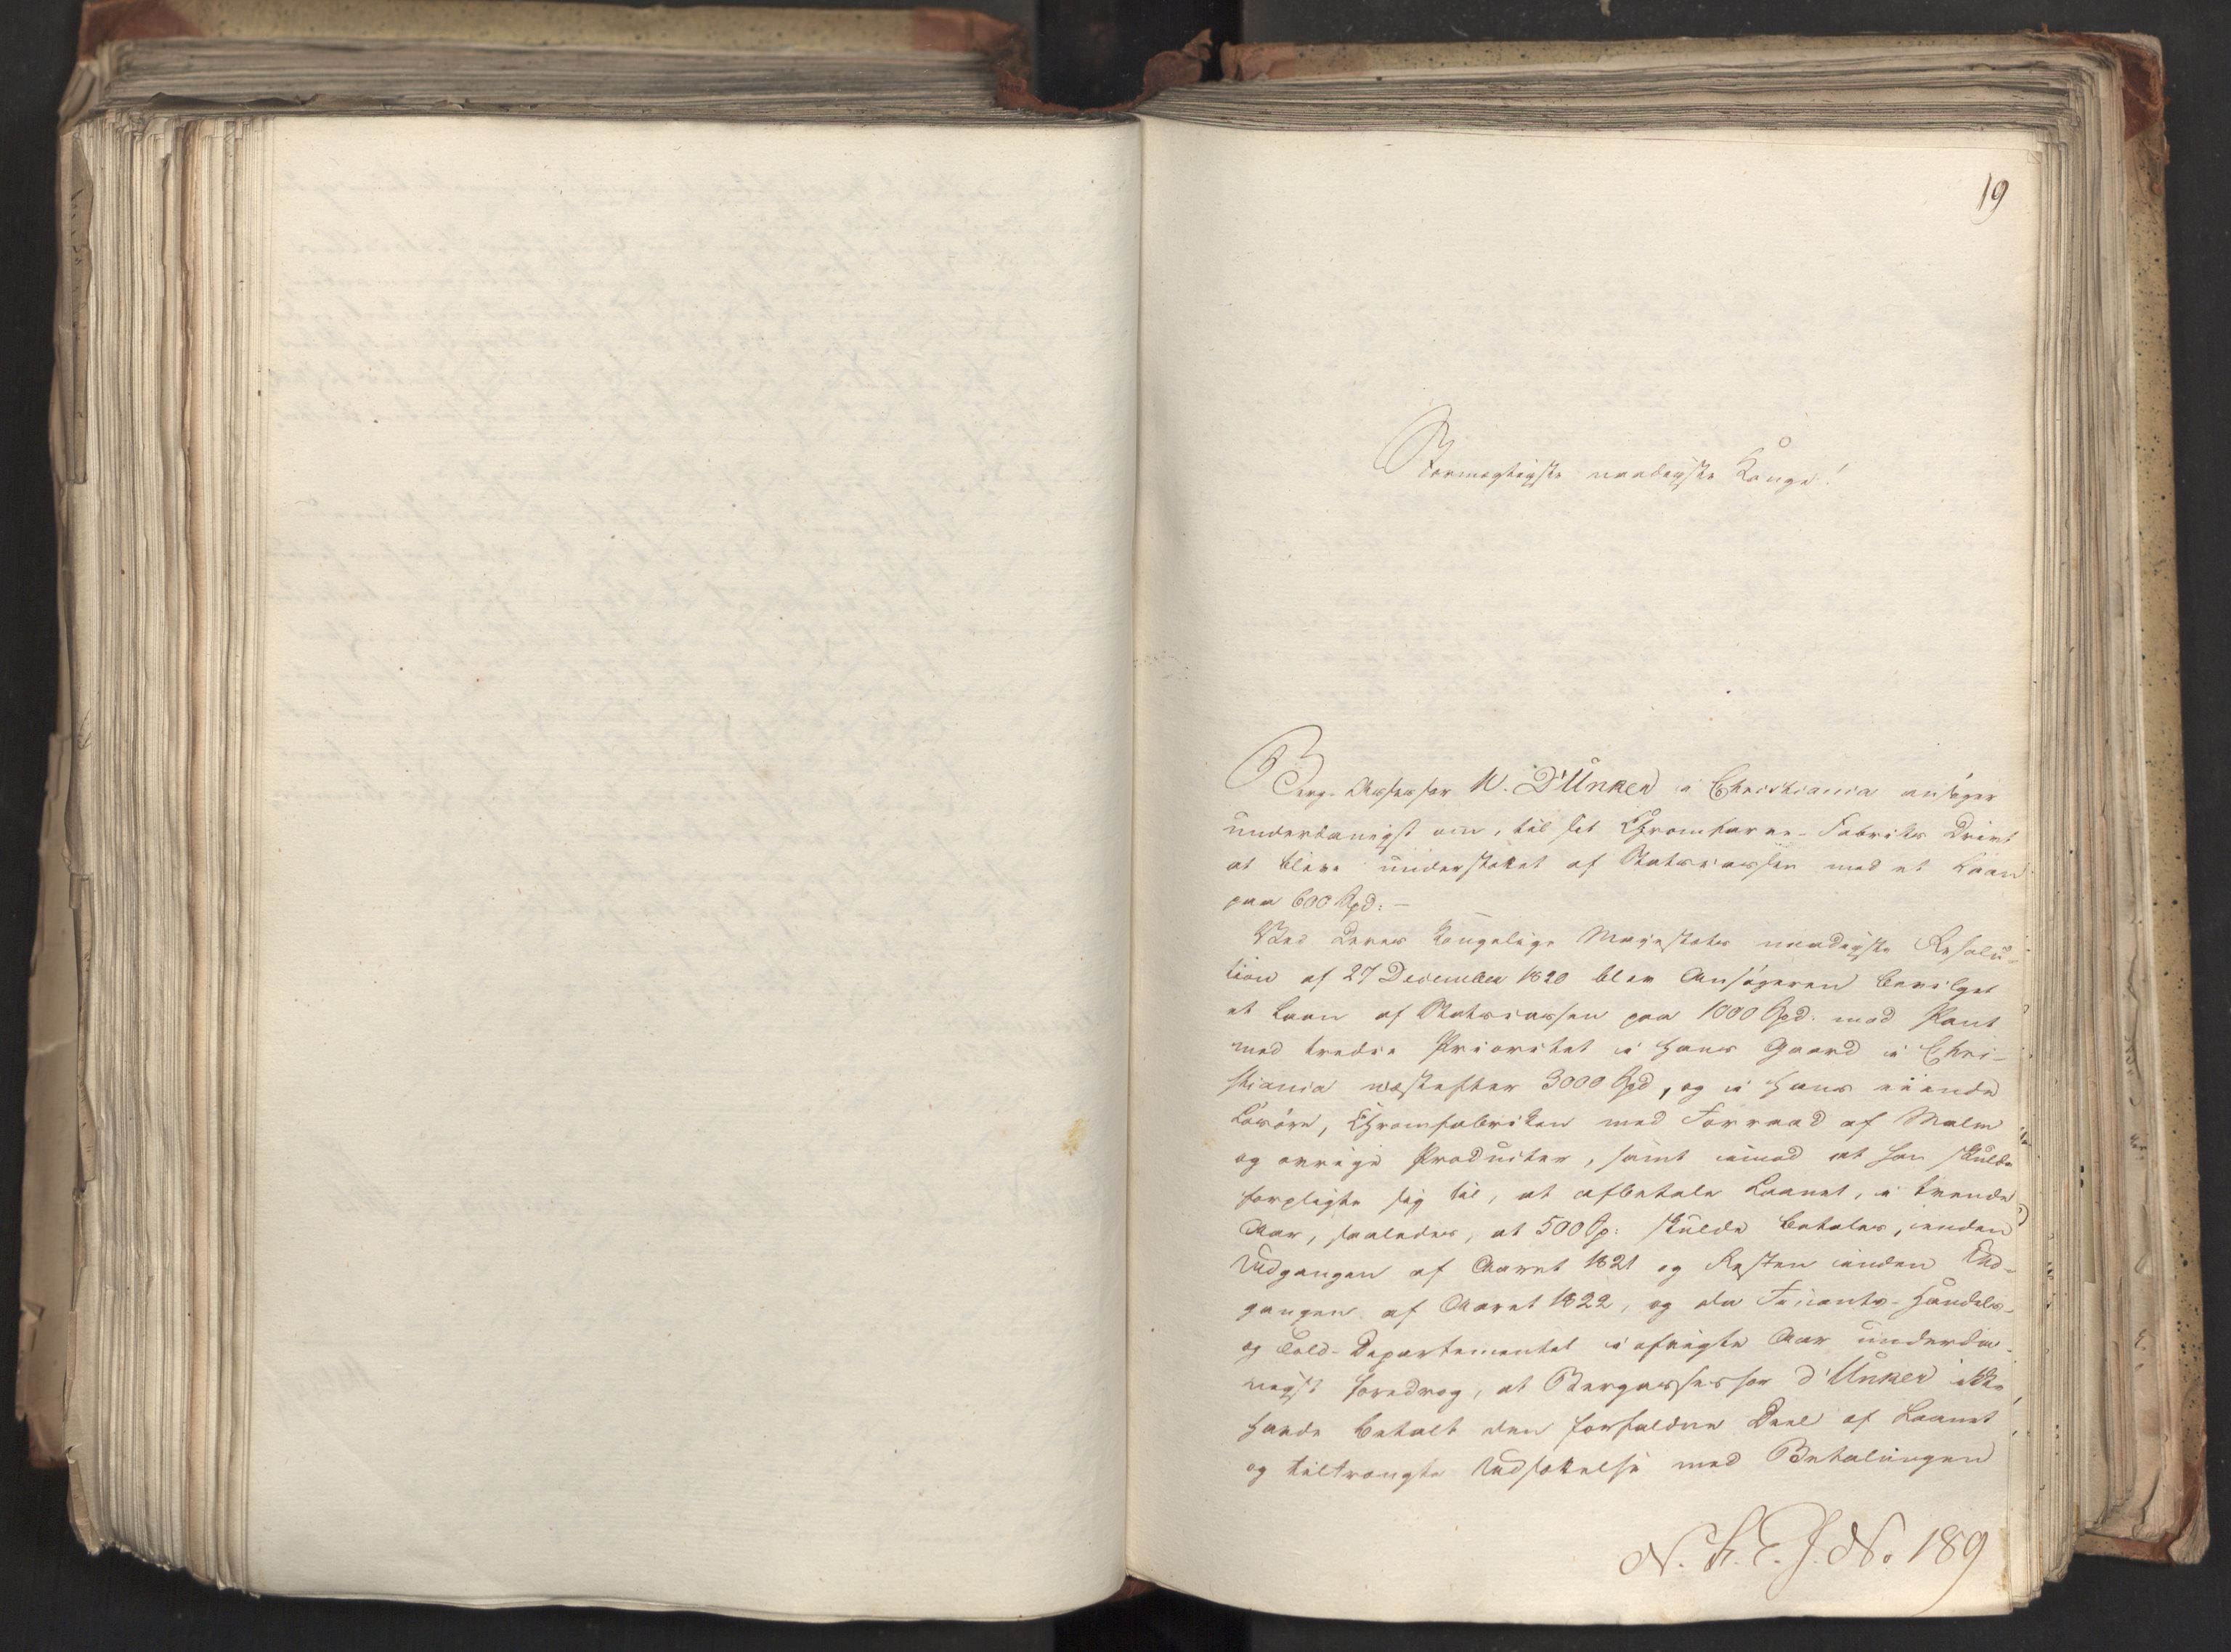 19
Stormægtigste naadigste Konge!
Berg-Assessor W. D'Unker i Christiania ansøger
underdanigst om, til sit Chromfarve-Fabriks Drivt
at blive understøttet af Statscassen med et Laan
paa 600 Spd: —
Ved Deres Kongelige Majestæts naadigste Resolu-
tion af 27 December 1820 blev Ansøgeren bevilget
et Laan af Statscassen paa 1000 Spd. mod Pant
med tredie Prioritet i hans Gaard i Chri-
stiania næstefter 3000 Spd, og i hans eiende
Løsøre, Chromfabriken med Forraad af Malm
og øvrige Producter, samt imod at han skulde
forpligte sig til, at afbetale Laanet, i tvende
Aar, saaledes, at 500 Sp: skulde betales, inden
Udgangen af Aaret 1821 og Resten inden Ud-
gangen af Aaret 1822, og da Finants-Handels-
og Told-Departementet i afvigte Aar underda-
nigst foredrog, at Bergassessor d'Unker ikke
havde betalt den forfaldne Deel af Laanet
og tiltrængte Udsættelse med Betalingen
N. S. E. J. No 189